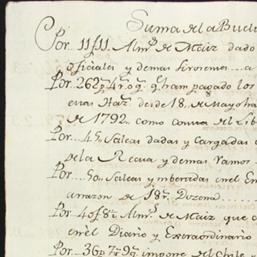 Suma de la Buelt
Por 11f11 Alm.s de Maiz dado
oficiales y demas sirvientes... a
Por 262p 4r 9g q.e han pagado los
esta Haz.da desde 18 de Mayo ha
de 1792. como consta del Lib
Por .. 45 faleas dadas y Cargadas
de la Recua y demas Ramos
Por .. 50 faleas y en el En
armazon de 18r Dozena
Por 40f 8r Alm.s de Maiz que
en el Diario y Extraordinario
Por .. 36p 7r 9g importe del Chile